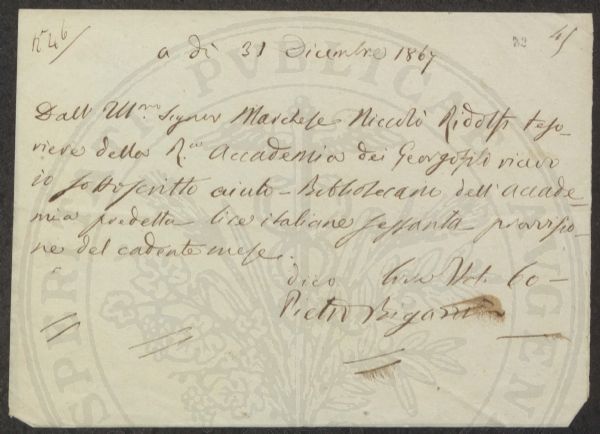 N° 46
45
a dì 31 Dicembre 1867
Dall' Ill.mo Signor Marchese Niccolò Ridolfi Teso-
riere della R.a Accademia dei Georgofili ricevo
io sottoscritto aiuto-Bibliotecario dell'accade-
mia predetta lire italiane sessanta provvisio-
ne del cadente mese.
dico Lire Ital. 60 -
Pietro